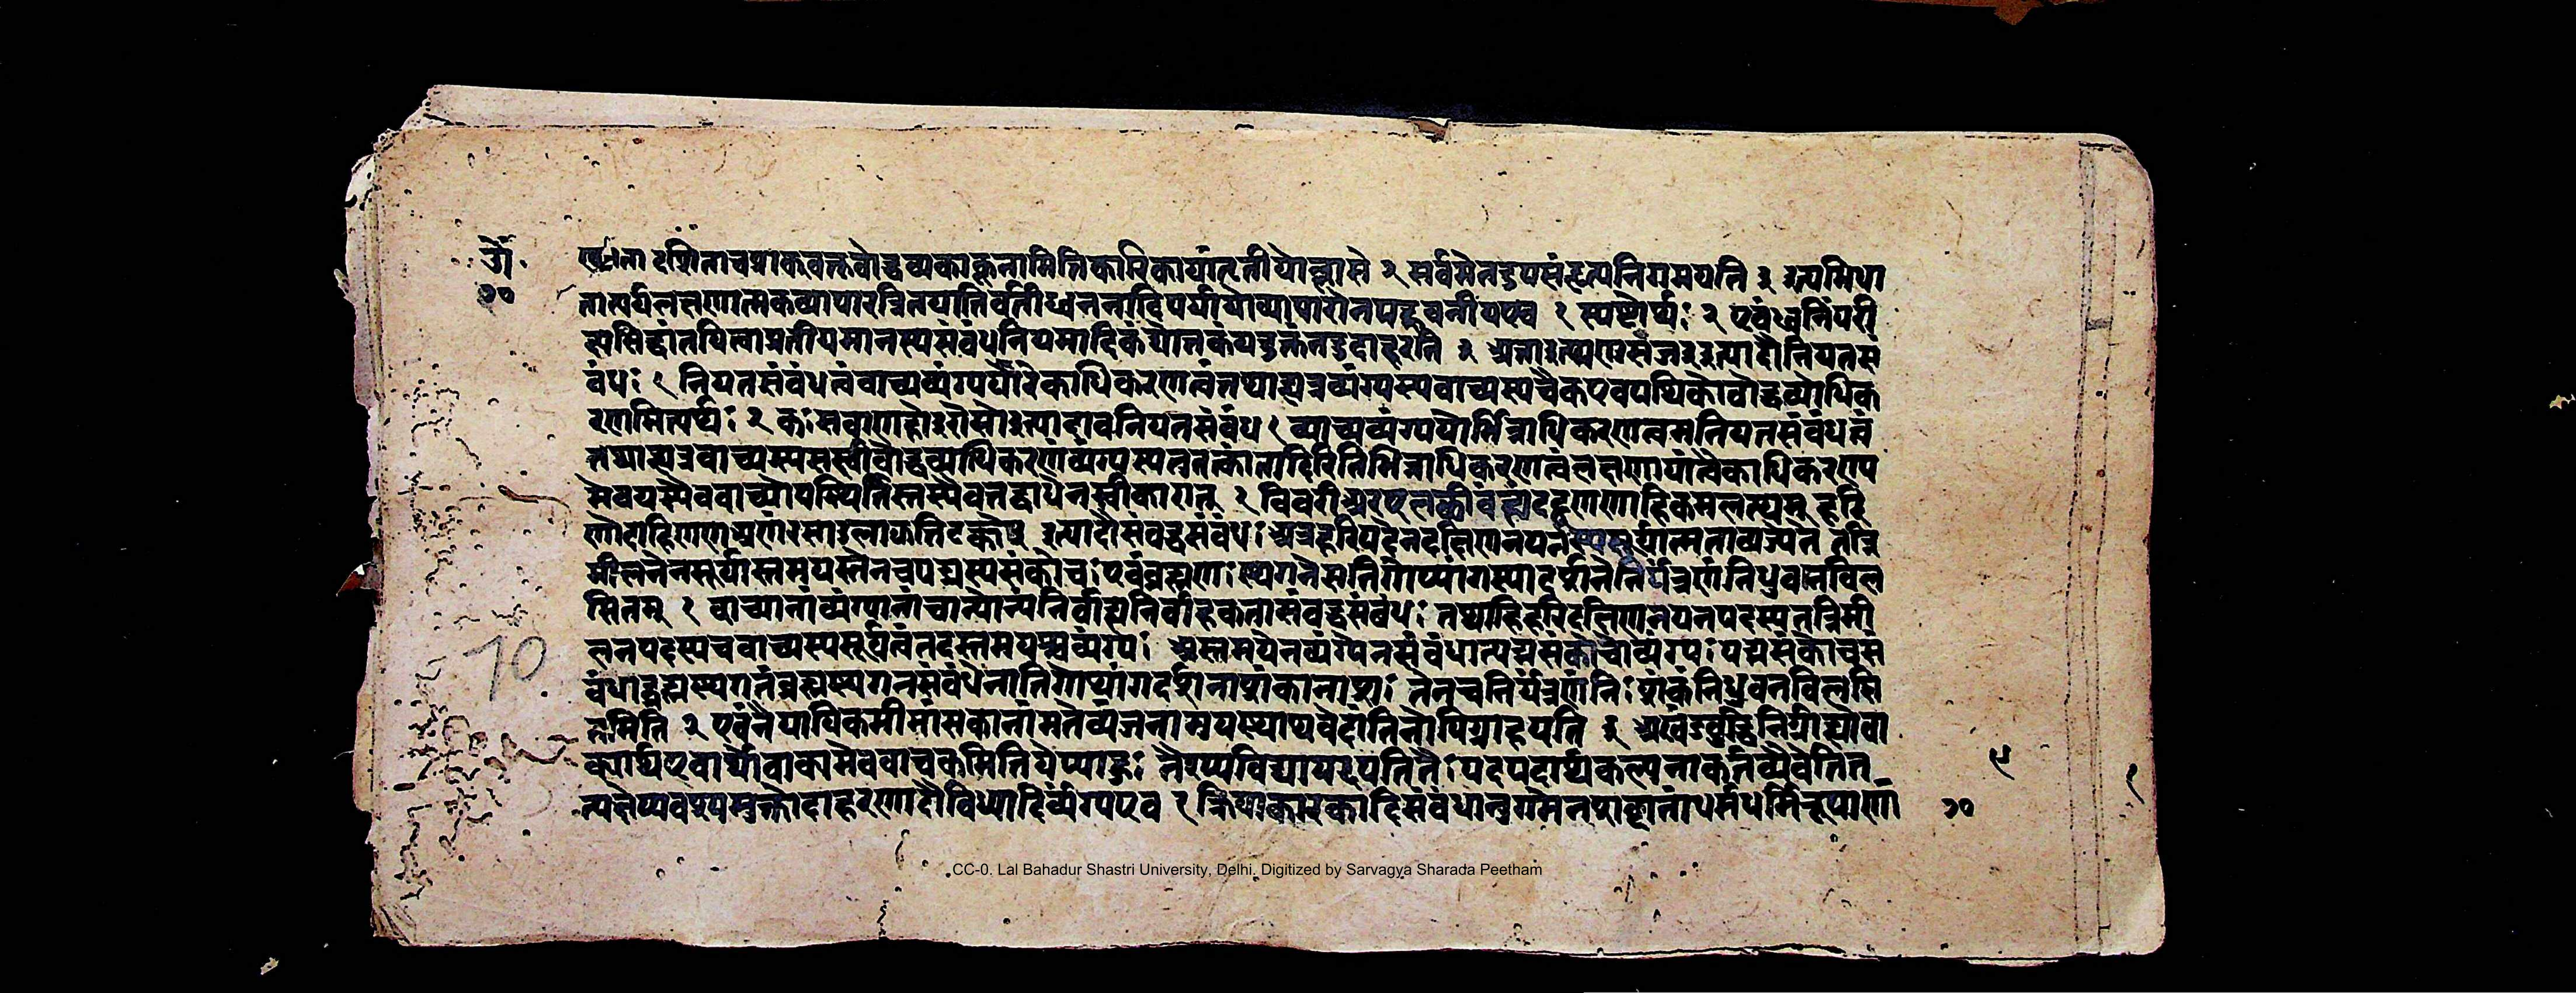 ॐ
१०
दर्शिताचप्राक्वक्तृबोद्धव्यकाकूनामितिकारिकायांतृतीयोल्लासे २ सर्वमेतदुपसंहृत्यनिगमयति ३ इत्यभिधा
तात्पर्यलक्षणात्मकव्यापारत्रितयातिवर्तीध्वननादिपर्यायोव्यापारोनपह्नवनीयएव १ स्पष्टोर्थः २ एवंध्वनिंपरी
क्ष्यसिद्धांतयित्वाप्रतीयमानस्यसंबंधनियमादिकंद्योतकंयदुक्तंतदुदाहरति ३ अत्ताइत्थणिसंजइइत्यादौनियतसं
बंधः १ नियतसंबंधत्वंवाच्यव्यंग्ययोरेकाधिकरणत्वंतथाह्यत्रव्यंग्यस्यवाच्यस्यचैकएवपथिकोबोद्धव्योधिक
रणमित्यर्थः २ कःसवाणहोइरोसोइत्यादावनियतसंबंध १ व्याच्यव्यंग्ययोर्भिन्नाधिकरणत्वमनियतसंबंधत्वं
तथाह्यत्रवाच्यस्यसखीबोद्धव्याधिकरणंव्यंग्यस्यतुतत्कांतादिरितिभिन्नाधिकरणत्वंलक्षणायांत्वेकाधिकरण्य
मेवयस्यैववाच्योपस्थितिस्तस्यैवतद्बाधेनस्वीकारात् २ विवरीअरएलच्छीबंह्मंदट्ठूणणाहिकमलत्थम् हरि
णोदाहिणणअणंरसाउलाझत्तिढक्केइ इत्यादौसंबद्धसंबंधः अत्रहरिपदेनदक्षिणनयनस्यसूर्यात्मताव्यज्यते तन्नि
मीलनेनसूर्यास्तमयस्तेनचपद्मस्यसंकोचः एवंब्रह्मणःस्थगनेसतिगोप्यांगस्यादर्शनेनिर्यंत्रणंनिधुवनविल
सितम् १ वाच्यानांव्यंग्यानांचान्योन्यनिर्वाह्यनिर्वाहकतासंबद्धसंबंधः तथाहिहरिदक्षिणनयनपदस्यतन्निमी
लनपदस्यचवाच्यस्यसूर्यत्वंतदस्तमयश्चव्यंग्यः अस्तमयेनव्यंग्येनसंबंधात्पद्मसंकोचोव्यंग्यः पद्मसंकोचसं
बंधाद्ब्रह्मस्थगनंब्रह्मस्थगनसंबंधेनातिगोप्यांगदर्शनाशंकानाशः तेनचनिर्यंत्रणंनिःशंकंनिधुवनविलसि
तमिति २ एवंनैयायिकमीमांसकानांमतेव्यंजनामुपस्थाप्यवेदांतिनोपिग्राहयति ३ अखंडबुद्धिनिर्ग्राह्योवा
क्यार्थएववाच्योवाक्यमेववाचकमितियेप्याहुः तैरप्यविद्यापदपतितैःपदपदार्थकल्पनाकर्तव्यैवेतित
त्पक्षेप्यवश्यमुक्तोदाहरणादौविध्यादिर्व्यंग्यएव १ क्रियाकारकादिसंबंधानुगमेनशब्दानांधर्मधर्मिरूपाणां
१०
10
CC-0. Lal Bahadur Shastri University, Delhi. Digitized by Sarvagya Sharada Peetham